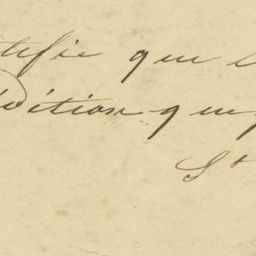 tifie que l
dition que
St